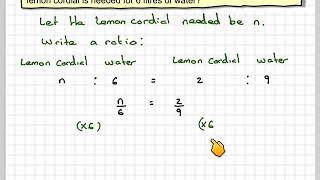 lemon cordial is needed for 6 litres of water?
Let the Lemon Cordial needed be n.
Write a ratio:
Lemon Cordial water Lemon Cordial water
n : 6 = 2 : 9
n/6 = 2/9
(×6) (×6